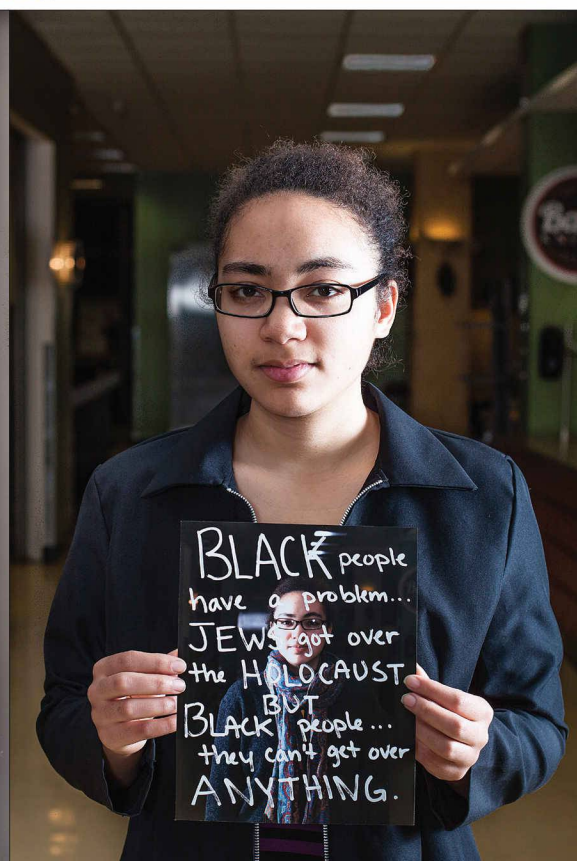 BLACK people
have a problem...
JEWS got over
the HOLOCAUST
BUT
BLACK people...
they can't get over
ANYTHING.